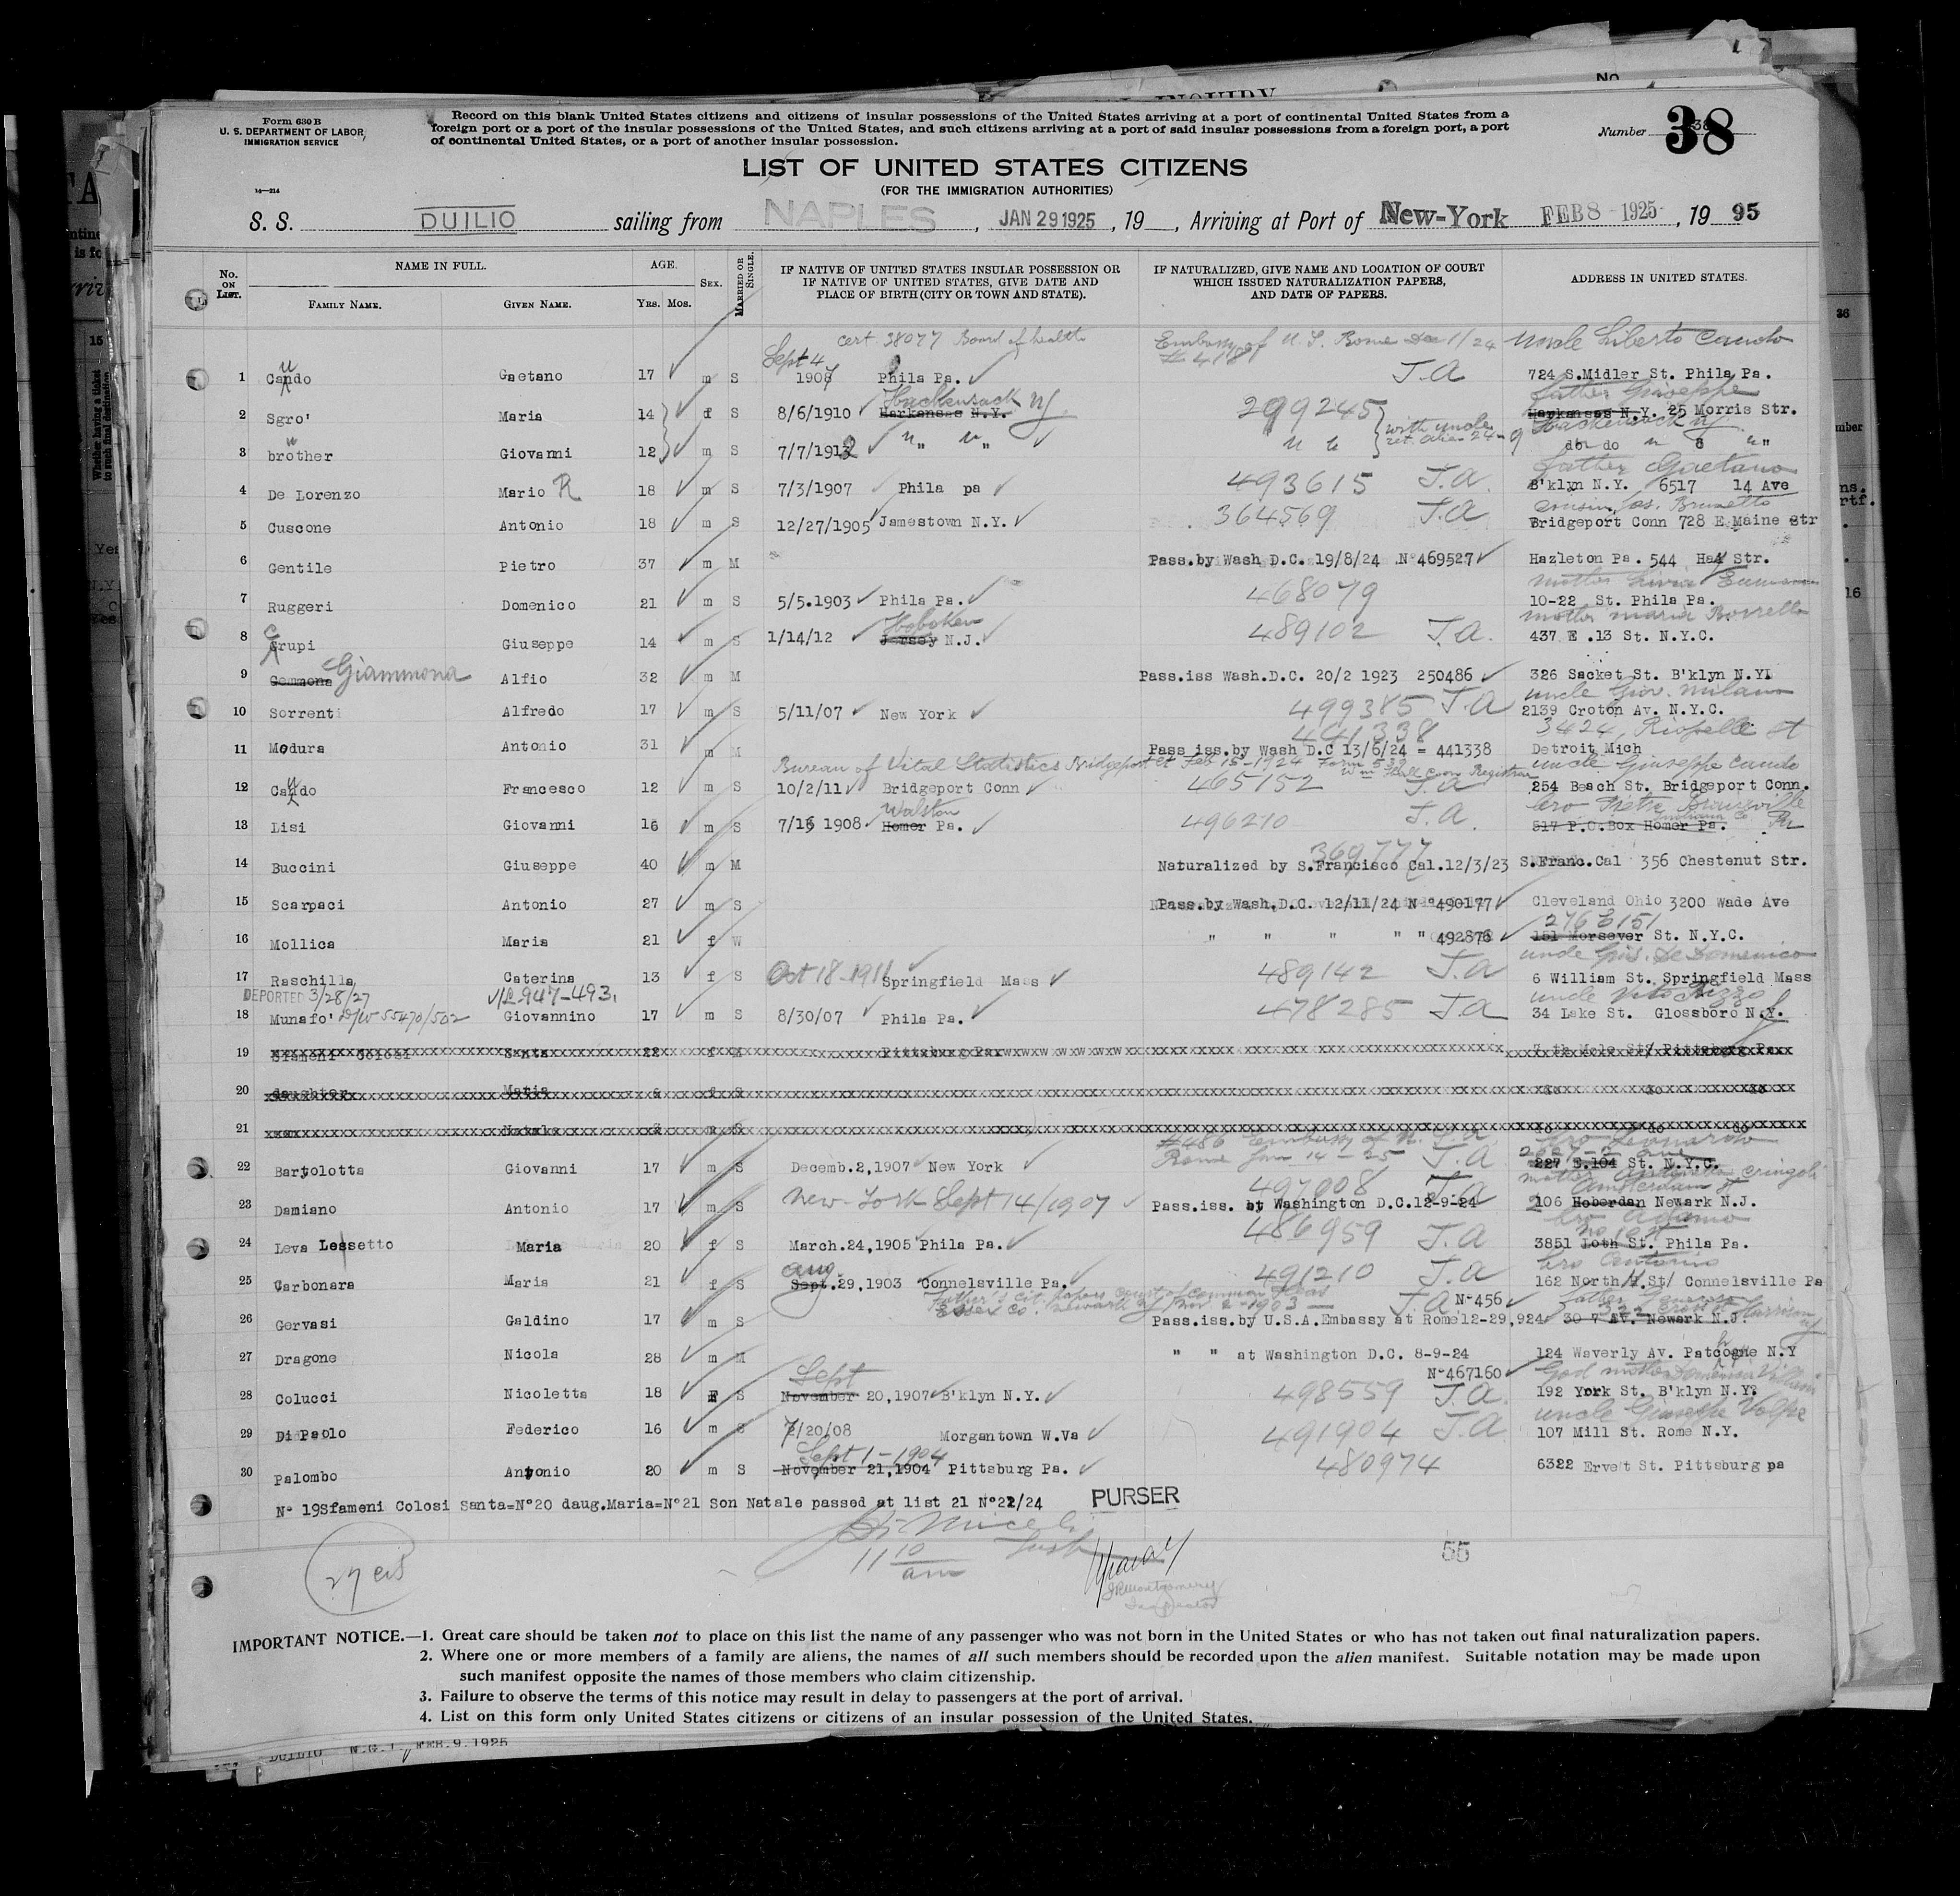 Form 630 B
U. S. DEPARTMENT OF LABOR,
IMMIGRATION SERVICE
14—214
Record on this blank United States citizens and citizens of insular possessions of the United States arriving at a port of continental United States from a
foreign port or a port of the insular possessions of the United States, and such citizens arriving at a port of said insular possessions from a foreign port, a port
of continental United States, or a port of another insular possession.
Number 38
LIST OF UNITED STATES CITIZENS
(FOR THE IMMIGRATION AUTHORITIES)
S. S. DUILIO sailing from NAPLES, JAN 29 1925, 19 , Arriving at Port of New-York FEB 8 - 1925, 19 95
No. ON LIST. NAME IN FULL. FAMILY NAME. GIVEN NAME. AGE. YRS. MOS. SEX. MARRIED OR SINGLE. IF NATIVE OF UNITED STATES INSULAR POSSESSION OR IF NATIVE OF UNITED STATES, GIVE DATE AND PLACE OF BIRTH (CITY OR TOWN AND STATE). IF NATURALIZED, GIVE NAME AND LOCATION OF COURT WHICH ISSUED NATURALIZATION PAPERS, AND DATE OF PAPERS. ADDRESS IN UNITED STATES.
cert. 38077 Board of health Embassy of U.S. Rome Dec 1/24 Uncle Liberto Caudo
Sept 4 # 418
1 Caudo Gaetano 17 m S 1907 Phila Pa. T.A 724 S.Midler St. Phila Pa.
Hackensack NJ father Giuseppe
2 Sgro' Maria 14 f S 8/6/1910 Harkensas N.Y. 299245 with uncle Harkensas N.Y. 25 Morris Str.
Hackensack NJ
3 brother Giovanni 12 m S 7/7/1912 " " " " do do " "
father Gaetano
4 De Lorenzo Mario R 18 m S 7/3/1907 Phila pa 493615 T.A. B'klyn N.Y. 6517 14 Ave
cousin Jos. Brunetto
5 Cuscone Antonio 18 m S 12/27/1905 Jamestown N.Y. 364569 T.A Bridgeport Conn 728 E Maine Str
6 Gentile Pietro 37 m M Pass.by Wash D.C. 19/8/24 N°469527 Hazleton Pa. 544 Str.
mother
7 Ruggeri Domenico 21 m S 5/5.1903 Phila Pa. 468079 10-22 St. Phila Pa.
Hoboken mother Maria Borrello
8 Crupi Giuseppe 14 m S 1/14/12 Jersey N.J. 489102 T.A. 437 E .13 St. N.Y.C.
9 Gemmona Giammona Alfio 32 m M Pass.iss Wash.D.C. 20/2 1923 250486 326 Sacket St. B'klyn N.Y
uncle Giov. Milano
10 Sorrenti Alfredo 17 m S 5/11/07 New York 499385 T.A 2139 Croton Av. N.Y.C.
441338 3424, Riopelle St
11 Modura Antonio 31 m M Pass iss.by Wash D.C 13/6/24 = 441338 Detroit Mich
Bureau of Vital Statistics Bridgeport Ct Feb 15-1924 Form 539 uncle Giuseppe Caudo
12 Caudo Francesco 12 m S 10/2/11 Bridgeport Conn 465152 T.A 254 Beach St. Bridgeport Conn.
bro Pietro
13 Lisi Giovanni 16 m S 7/15 1908 Homer Pa. 496210 T.A. 517 P.O.Box Homer Pa. Pa
369777
14 Buccini Giuseppe 40 m M Naturalized by S.Francisco Cal.12/3/23 S.Franc.Cal 356 Chestenut Str.
15 Scarpaci Antonio 27 m S Pass.by Wash.D.C. 12/11/24 N° 490177 Cleveland Ohio 3200 Wade Ave
276 E 151
16 Mollica Maria 21 f W " " " " " 492876 151 Morsever St. N.Y.C.
uncle Gius. De Domenico
17 Raschilla Caterina 13 f S Oct 18-1911 Springfield Mass 489142 T.A 6 William St. Springfield Mass
DEPORTED 3/28/27 V/L 947-493. uncle Vito Rizzo
18 Munafo' D/W 55470/502 Giovannino 17 m S 8/30/07 Phila Pa. 478285 T.A 34 Lake St. Glossboro N.Y.
19 Sfameni Colosi Santa 22 f M Pittsburg Pa 7 th Mole St/ Pittsburg Pa
20 daughter Matia f S do do do
21 son Natale m S do do do
#486 Embassy of U.S.A bro Leonardo
Rome Jan 14-25 2627-2 ave
22 Bartolotta Giovanni 17 m S Decemb.2,1907 New York T.A 227 E.104 St. N.Y.C.
497008 T.A Amsterdam St
23 Damiano Antonio 17 m S New York Sept 14/1907 Pass.iss. at Washington D.C.12-9-24 106 Hoberdan Newark N.J.
bro Adamo
24 Leva Lessetto Maria 20 f S March.24,1905 Phila Pa. 486959 T.A 3851 Loth St. Phila Pa.
Aug. bro Antonio
25 Carbonara Maria 21 f S Sept.29,1903 Connelsville Pa. 491210 T.A 162 North St/ Connelsville Pa
Father's Cit. papers Court of Common Pleas
Essex Co. Newark NJ Nov. 2-1903 — T.A N°456 322 Cross St Harrison NJ
26 Gervasi Galdino 17 m S Pass.iss.by U.S.A.Embassy at Rome 12-29,924 30 7 AV. Newark N.J.
27 Dragone Nicola 28 m M " " at Washington D.C. 8-9-24 124 Waverly Av. Patchogue N.Y
Sept N°467160 God mother
28 Colucci Nicoletta 18 F S November 20,1907 B'klyn N.Y. 498559 T.A. 192 York St. B'klyn N.Y.
uncle Giuseppe Volpe
29 Di Paolo Federico 16 m S 7/20/08 Morgantown W.Va 491904 T.A 107 Mill St. Rome N.Y.
Sept 1-1904
30 Palombo Antonio 20 m S November 21,1904 Pittsburg Pa. 480974 6322 Ervet St. Pittsburg pa
N° 19Sfameni Colosi Santa=N°20 daug.Maria=N°21 Son Natale passed at list 21 N°22/24 PURSER
11 10 am
27 cit
55
JR Montgomery
Inspector
IMPORTANT NOTICE.—1. Great care should be taken not to place on this list the name of any passenger who was not born in the United States or who has not taken out final naturalization papers.
2. Where one or more members of a family are aliens, the names of all such members should be recorded upon the alien manifest. Suitable notation may be made upon
such manifest opposite the names of those members who claim citizenship.
3. Failure to observe the terms of this notice may result in delay to passengers at the port of arrival.
4. List on this form only United States citizens or citizens of an insular possession of the United States.
DUILIO N.G.I. FEB.9.1925